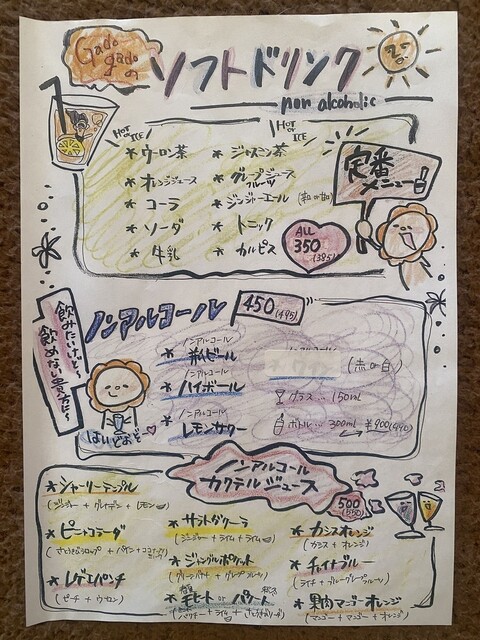 Gado gadoの
ソフトドリンク
non alcoholic
HOT or ICE
HOT or ICE
* ウーロン茶
* ジャスミン茶
* オレンジジュース
* グレープフルーツジュース
* コーラ
* ジンジャーエール
* ソーダ
* トニック
* 牛乳
* カルピス
定番メニュー
ALL
350
(385)
ノンアルコール
450 (495)
飲みたいけど〜
飲めない貴方に〜
はいどおぞ〜
ノンアルコール
* ビール
ノンアルコール
* ハイボール
ノンアルコール
* レモンサワー
(赤 or 白)
グラス… 150ml
ボトル… 300ml
¥900(990)
ノンアルコール
カクテルジュース
500
(550)
* シャーリーテンプル
(ジンジャー + グレナデン + レモン)
* ピニャコラーダ
* レゲエパンチ
(ピーチ + ウーロン)
* サラトガクーラ
(ジンジャー + ライム + ライム)
* ジャングルポケット
* モヒート or
* カシスオレンジ
(カシス + オレンジ)
* チャイナブルー
(ライチ + ブルーグレープフルーツ)
* 果肉マンゴーオレンジ
(マンゴー + マンゴー + オレンジ)